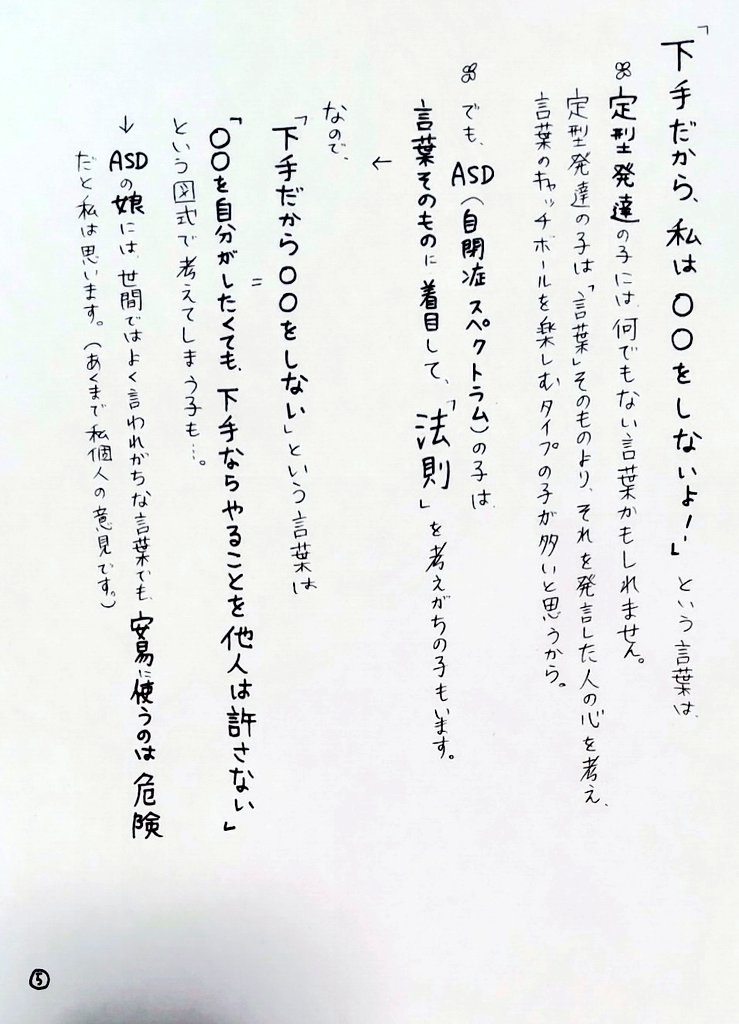 「下手だから、私は〇〇をしないよ！」という言葉は、
定型発達の子には、何でもない言葉かもしれません。
定型発達の子は「言葉」そのものより、それを発言した人の心を考え、
言葉のキャッチボールを楽しむタイプの子が多いと思うから。
でも、ASD(自閉症スペクトラム)の子は、
言葉そのものに着目して、「法則」を考えがちの子もいます。
←
なので、
「下手だから〇〇をしない」という言葉は
=
「〇〇を自分がしたくても、下手ならやることを他人は許さない」
という図式で考えてしまう子も…。
↓ASDの娘には、世間ではよく言われがちな言葉でも、安易に使うのは危険
だと私は思います。(あくまで私個人の意見です。)
⑤